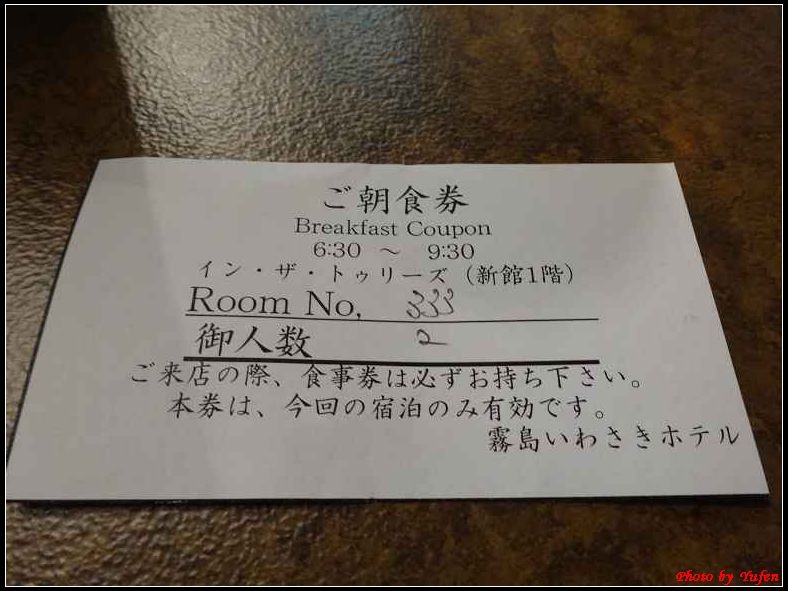 ご朝食券
Breakfast Coupon
6:30 ～ 9:30
イン・ザ・トゥリーズ（新館1階）
Room No, 333
御人数 2
ご来店の際、食事券は必ずお持ち下さい。
本券は、今回の宿泊のみ有効です。
霧島いわさきホテル
Photo by Yufen